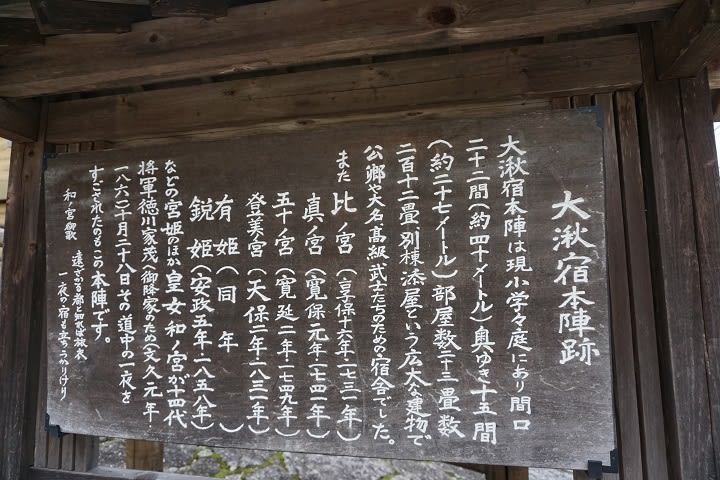 大湫宿本陣跡
大湫宿本陣は現小学々庭にあり間口
二十二間(約四十メートル)奥ゆき十五間
(約二十七メートル)部屋数二十三畳数
二百十二畳、別棟添屋という広大な建物で
公郷や大名高級武士たちのための宿舎でした。
また 比ノ宮(享保十六年・一七三一年)
真ノ宮(寛保元年・一七四一年)
五十ノ宮(寛延二年・一七四九年)
登美宮(天保二年・一八三一年)
有姫(同年)
鋭姫(安政五年・一八五八年)
などの宮姫のほか皇女和ノ宮が十四代
将軍徳川家茂へ御降家のため(文久元年・
一八六一)十月二十八日その道中の一夜を
すごされたのもこの本陣です。
和ノ宮御歌
遠ざかる都と知れば旅衣
一夜の宿も立ちうかりけり